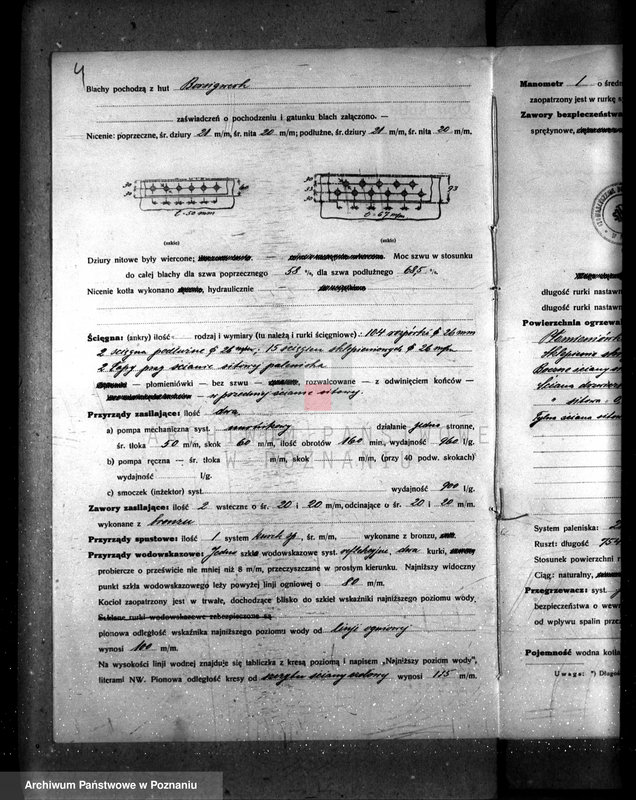 4
Blachy pochodzą z hut Borsigwerk
zaświadczeń o pochodzeniu i gatunku blach załączono. —
Nicenie: poprzeczne, śr. dziury 21 m/m, śr. nita 20 m/m; podłużne, śr. dziury 21 m/m, śr. nita 20 m/m.
t-50 mm
t-67 m/m
93
(szkic) (szkic)
Dziury nitowe były wiercone; — Moc szwu w stosunku
do całej blachy dla szwa poprzecznego 58 %, dla szwa podłużnego 68,5 %.
Nicenie kotła wykonano hydraulicznie —
Ścięgna: (ankry) ilość rodzaj i wymiary (tu należą i rurki ścięgniowe): 104 rozpórki ϕ 26 mm
2 ścięgna podłużne ϕ 26 m/m; 15 ścięgien sklepieniowych ϕ 26 m/m
2 łapy przy ścianie sitowej paleniska
— płomieniówki — bez szwu — rozwalcowane — z odwinięciem końców —
w przedniej ścianie sitowej.
Przyrządy zasilające: ilość dwa
a) pompa mechaniczna syst. działanie jedno stronne,
śr. tłoka 50 m/m, skok 60 m/m, ilość obrotów 160 min., wydajność 960 l/g.
b) pompa ręczna — śr. tłoka m/m, skok m/m, (przy 40 podw. skokach)
wydajność l/g.
c) smoczek (inżektor) syst. wydajność 900 l/g.
Zawory zasilające: ilość 2 wsteczne o śr. 20 i 20 m/m, odcinające o śr. 20 i 20 m/m.
wykonane z bronzu
Przyrządy spustowe: ilość 1 system kurek sp., śr. m/m, wykonane z bronzu,
Przyrządy wodowskazowe: Jedno szkło wodowskazowe syst. refleksyjne, dwa kurki,
probiercze o prześwicie nie mniej niż 8 m/m, przeczyszczane w prostym kierunku. Najniższy widoczny
punkt szkła wodowskazowego leży powyżej linji ogniowej o 80 m/m.
Kocioł zaopatrzony jest w trwałe, dochodzące blisko do szkieł wskaźniki najniższego poziomu wody.
Szklane rurki wodowskazowe zabezpieczone są
pionowa odległość wskaźnika najniższego poziomu wody od linji ogniowej
wynosi 100 m/m.
Na wysokości linji wodnej znajduje się tabliczka z kresą poziomą i napisem „Najniższy poziom wody",
literami NW. Pionowa odległość kresy od szczytu ściany sitowej wynosi 115 m/m.
Manometr 1 o śred
zaopatrzony jest w rurkę s
Zawory bezpieczeństwa
sprężynowe,
długość rurki nastawn
długość rurki nastawn
Powierzchnia ogrzewa
Płomieniówk
Sklepienie
Boczne ściany
Ściana drzwiow
" sitowa
Tylna ściana sitow
System paleniska:
Ruszt: długość 754
Stosunek powierzchni r
Ciąg: naturalny,
Przegrzewacz: syst.
bezpieczeństwa o wewn
od wpływu spalin przez
Pojemność wodna kotła
Uwaga: *) Długoś
ARCHIWUM PAŃSTWOWE
W POZNANIU
Archiwum Państwowe w Poznaniu